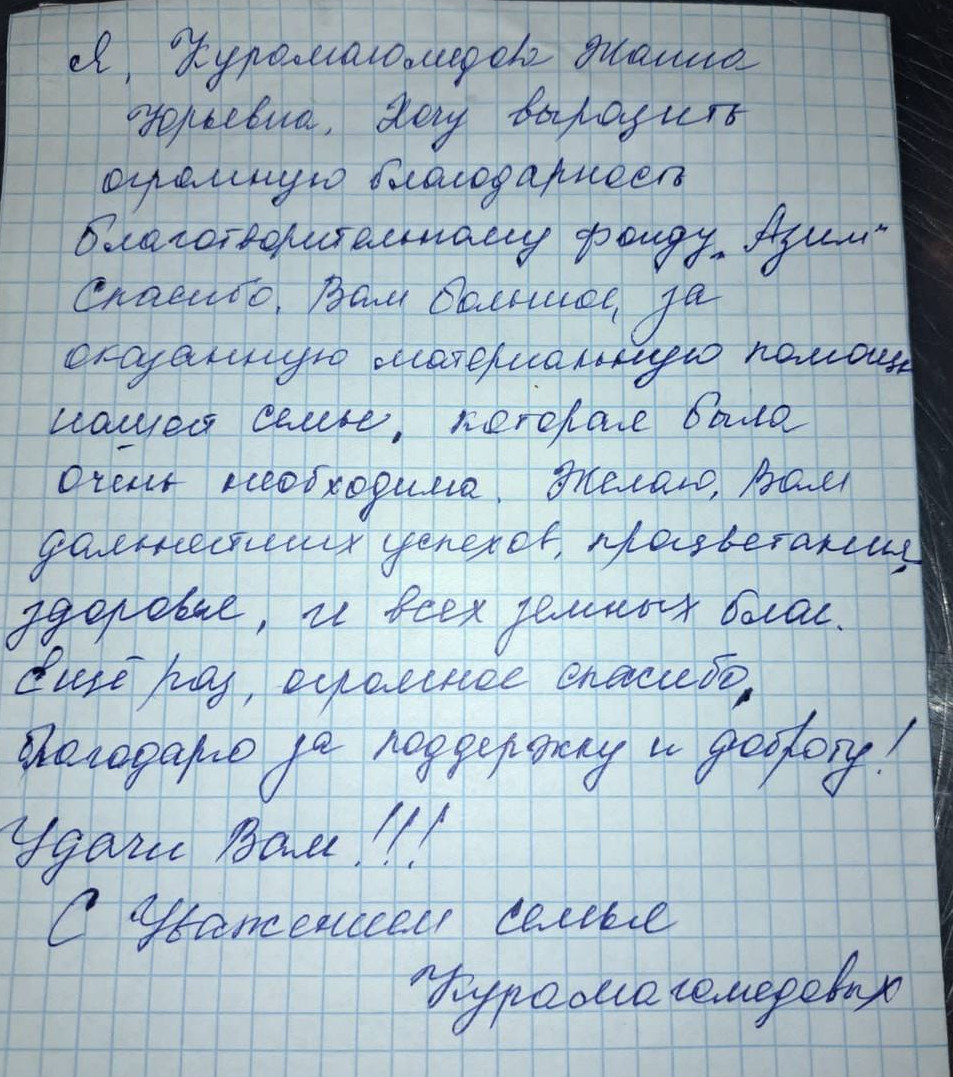 Я, Курамагомедова Жанна
Юрьевна. Хочу выразить
огромную благодарность
благотворительному фонду „Азим"
Спасибо, Вам большое, за
оказанную материальную помощь
нашей семье, которая была
очень необходима. Желаю, Вам
дальнейших успехов, процветания,
здоровье, и всех земных благ.
Ещё раз, огромное спасибо,
благодарю за поддержку и доброту!
Удачи Вам!!!
С Уважением семья
Курамагомедовых